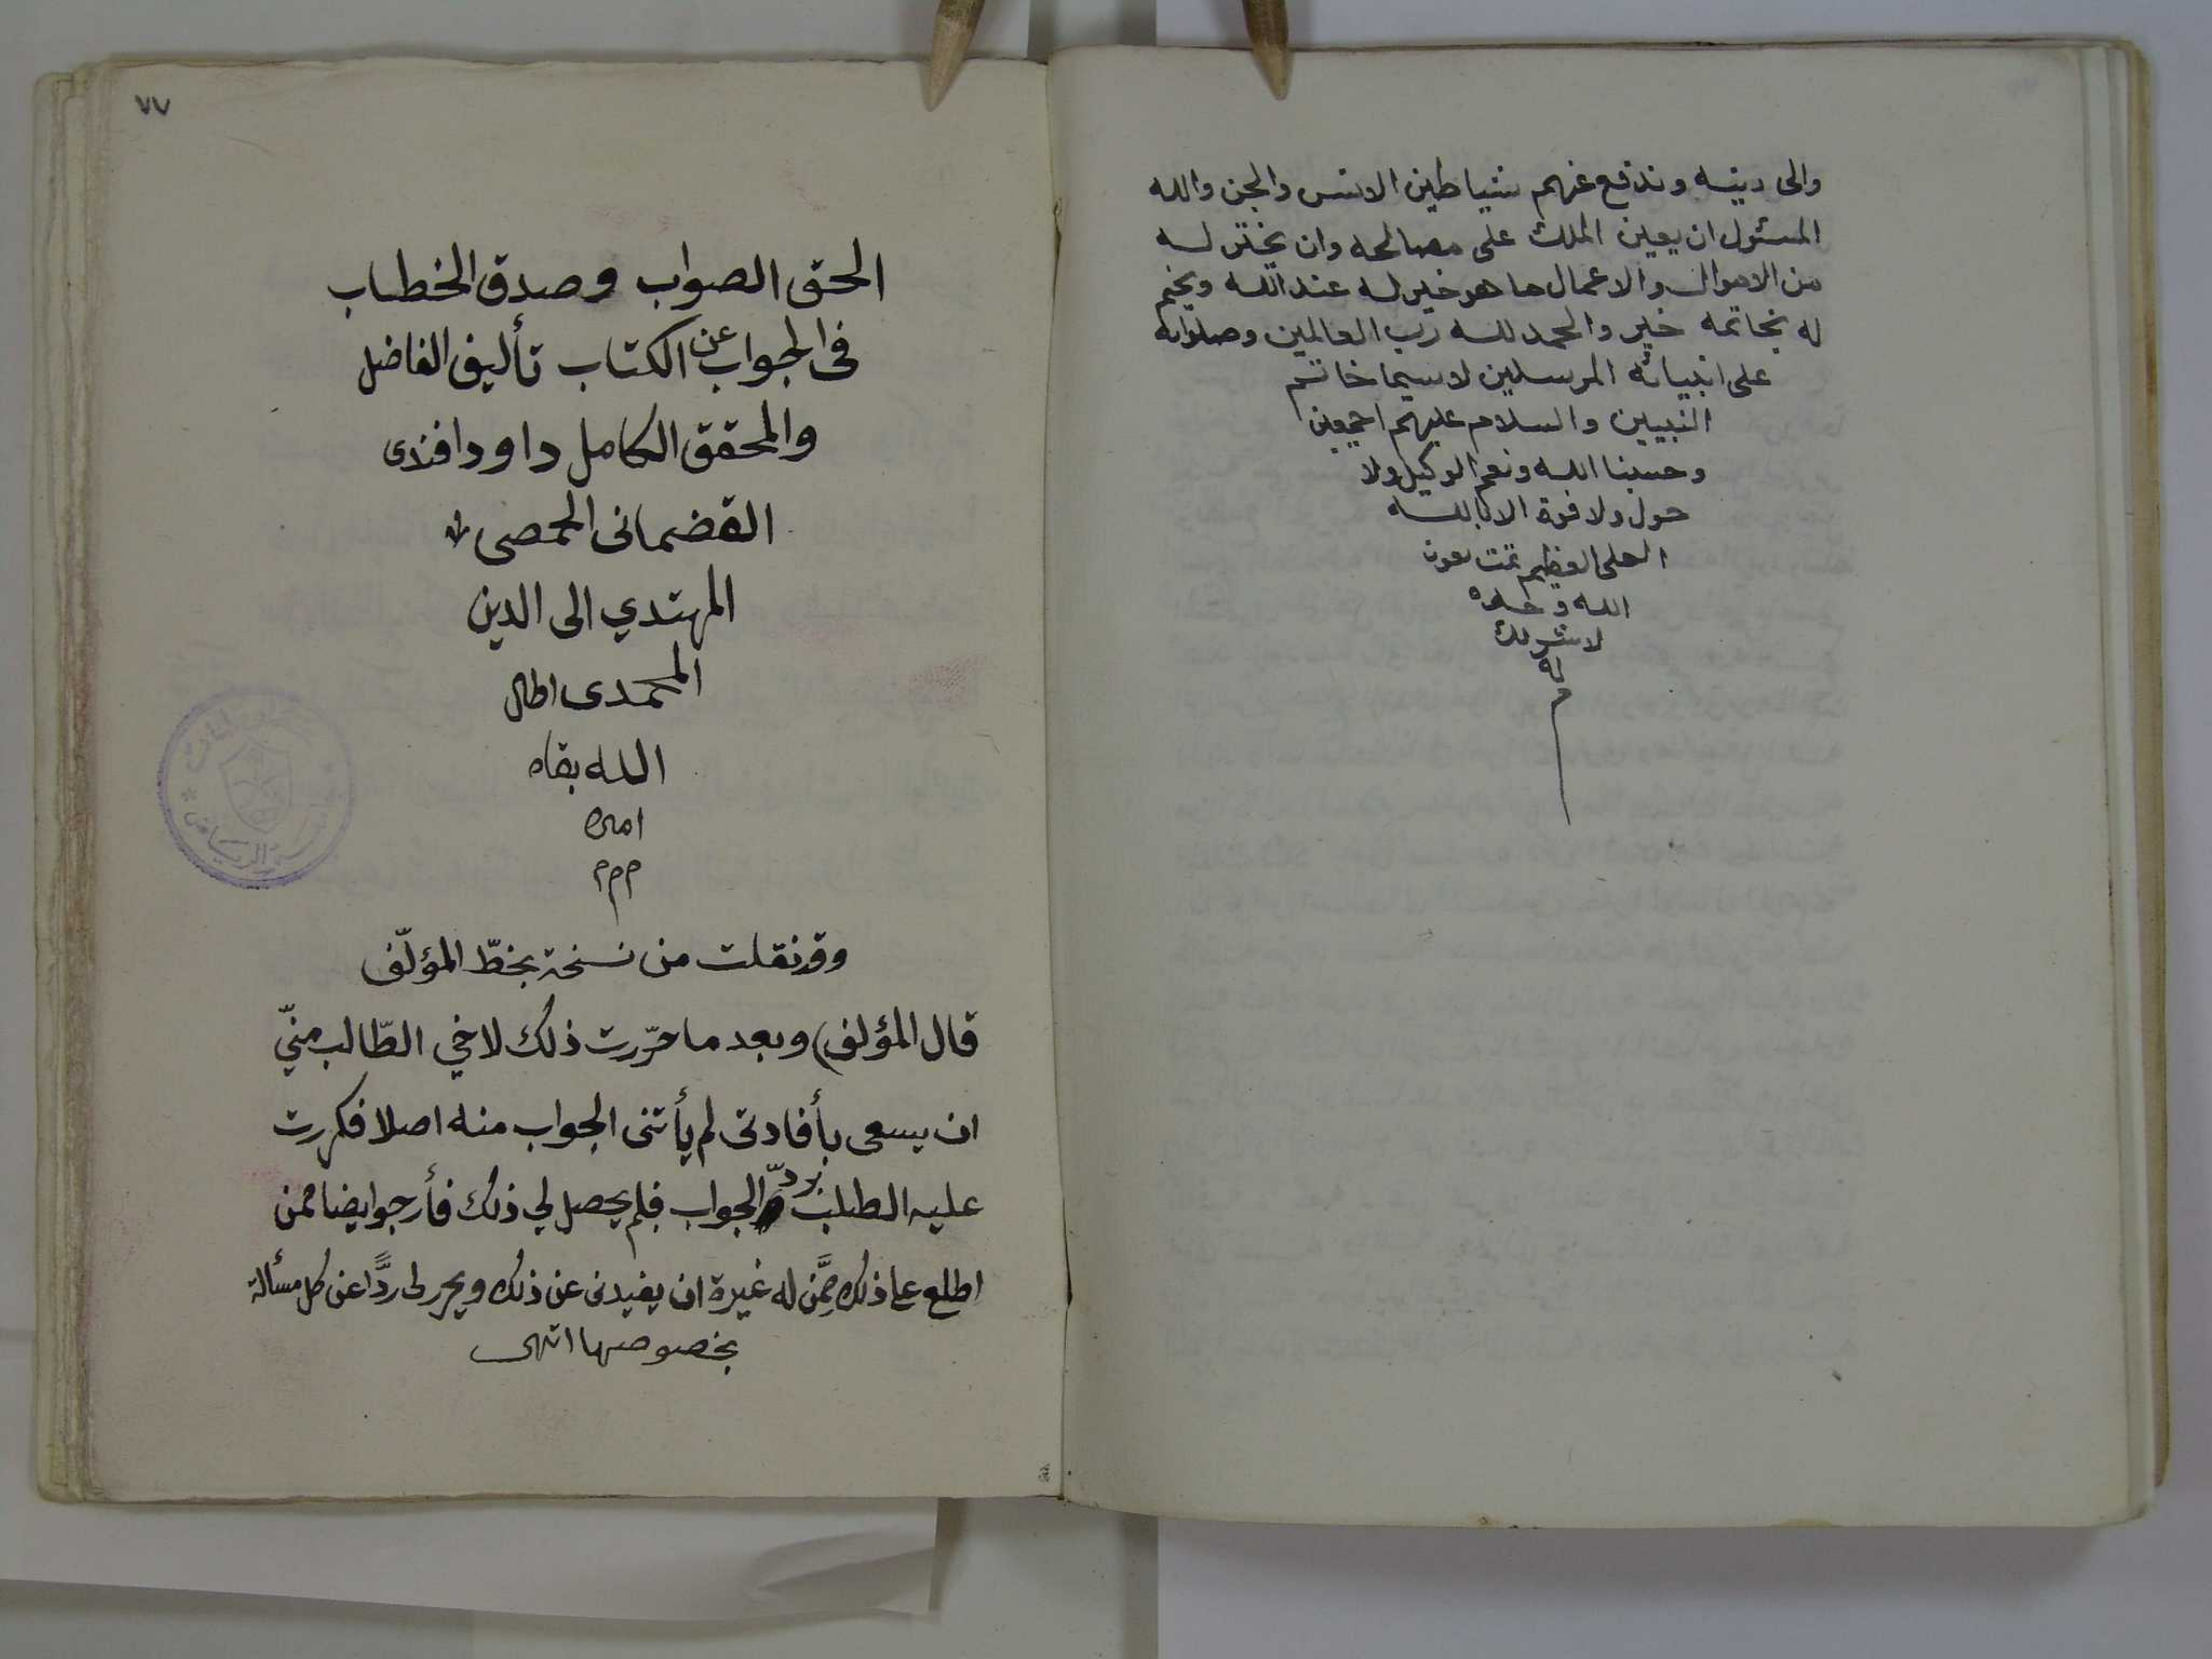 والى دينه وندفع عنهم شياطين الانس والجن والله
المسئول ان يعين الملك على مصالحه وان يختر له
من الاموال والاعمال ما هو خير له عند الله ويختم
له بخاتمه خير والحمد لله رب العالمين وصلواته
على انبيائه المرسلين لاسيما خاتم
النبيين والسلام عليهم اجمعين
وحسبنا الله ونعم الوكيل ولا
حول ولا قوة الا بالله
العلى العظيم تمت بعون
الله وحده
لا شريك
له
م
٧٧
الحق الصواب وصدق الخطاب
فى الجواب عن الكتاب تأليف الفاضل
والمحقق الكامل داود افندى
القضمانى الحمصى
المهتدي الى الدين
المحمدى اطال
الله بقاه
امين
م م م
وقد نقلت من نسخة بخطّ المؤلّف
قال المؤلف) وبعد ما حرّرت ذلك لاخي الطّالب منيّ
ان يسعى بأفادتى لم يأتنى الجواب منه اصلا فكررت
عليه الطلب بردّ الجواب فلم يحصل لي ذلك فأرجو ايضا ممن
اطلع على ذلك ممَّن له غيرة ان يفيدنى عن ذلك ويحرر لى ردًّا عن كل مسألة
بخصوصها انتهى
الرياض